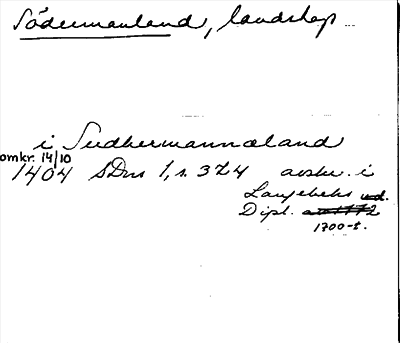 Södermanland, landskap
i Sudhermannaland
omkr. 14/10
1404 SDns 1, s. 374 avskr. i
Langebeks
Dipl.
1700-t.